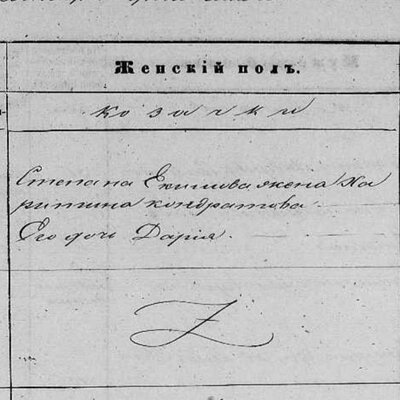 Женскій полъ.
козачки
Степана Екимова жена Ха
ритина кондратова
Его дочь Дарія.